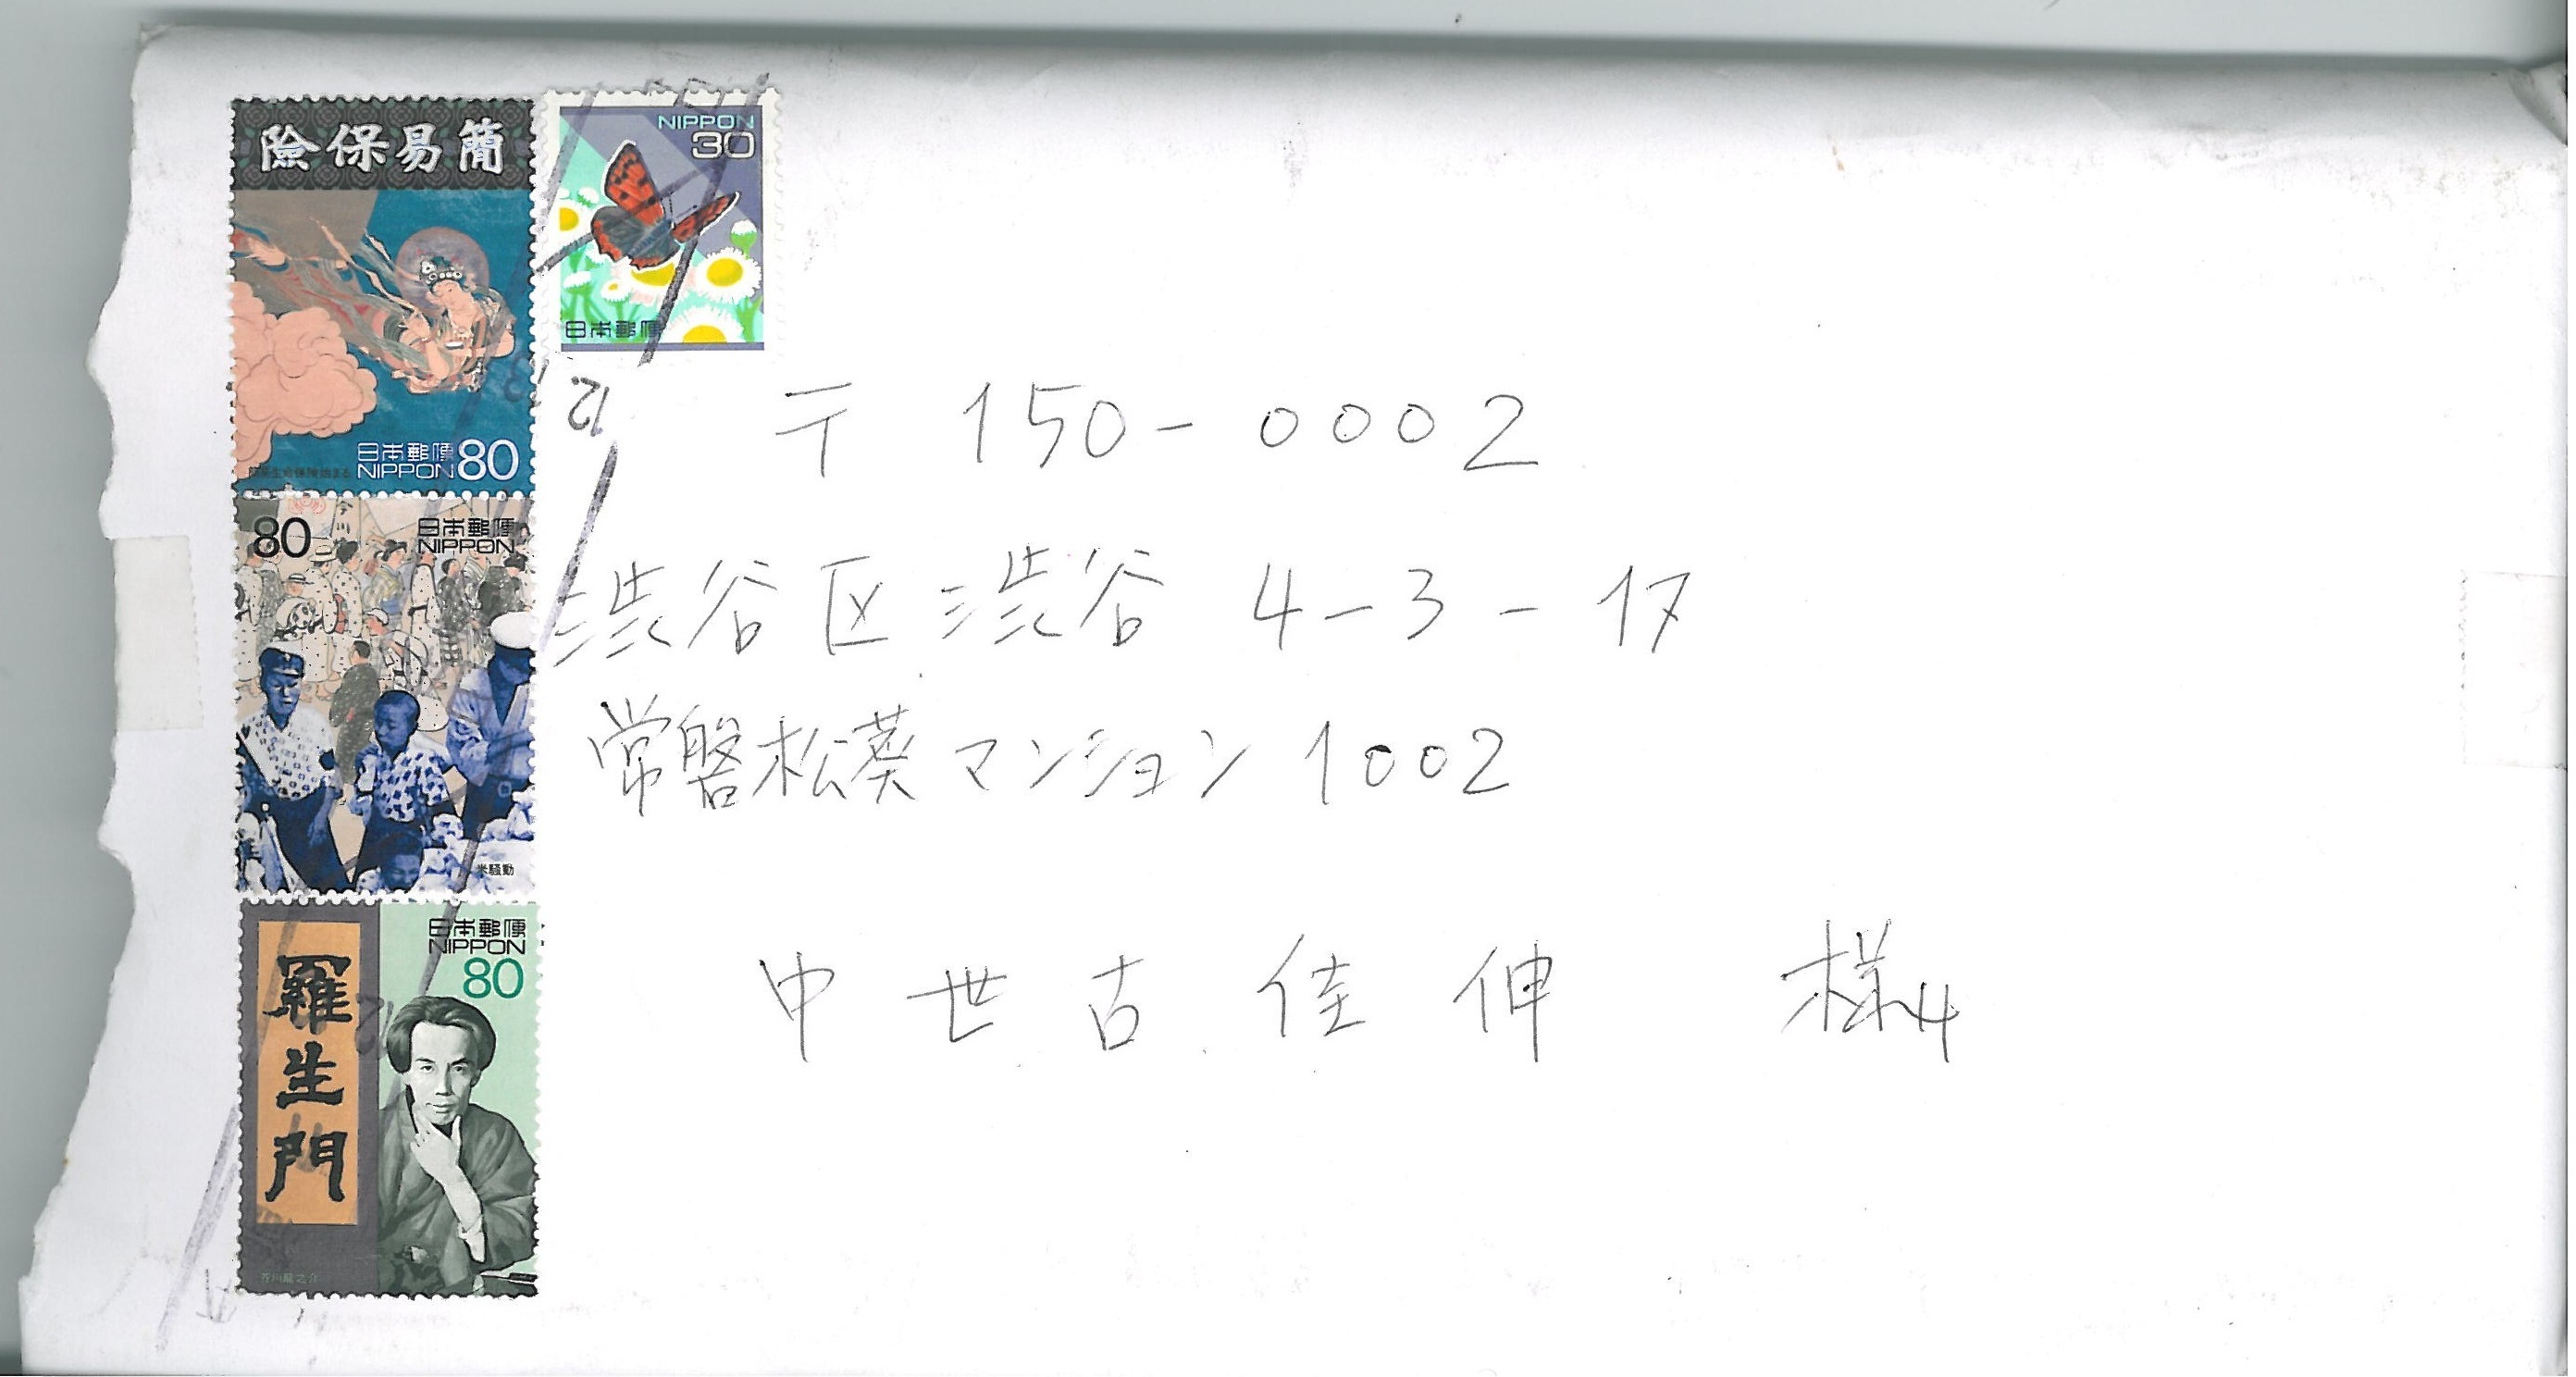 簡易保険
簡易生命保険始まる
日本郵便
NIPPON 80
NIPPON
30
日本郵便
12.
80 日本郵便
NIPPON
米騒動
日本郵便
NIPPON
80
羅生門
芥川龍之介
〒 150-0002
渋谷区渋谷 4-3-17
常磐松葵マンション 1002
中世古佳伸 様